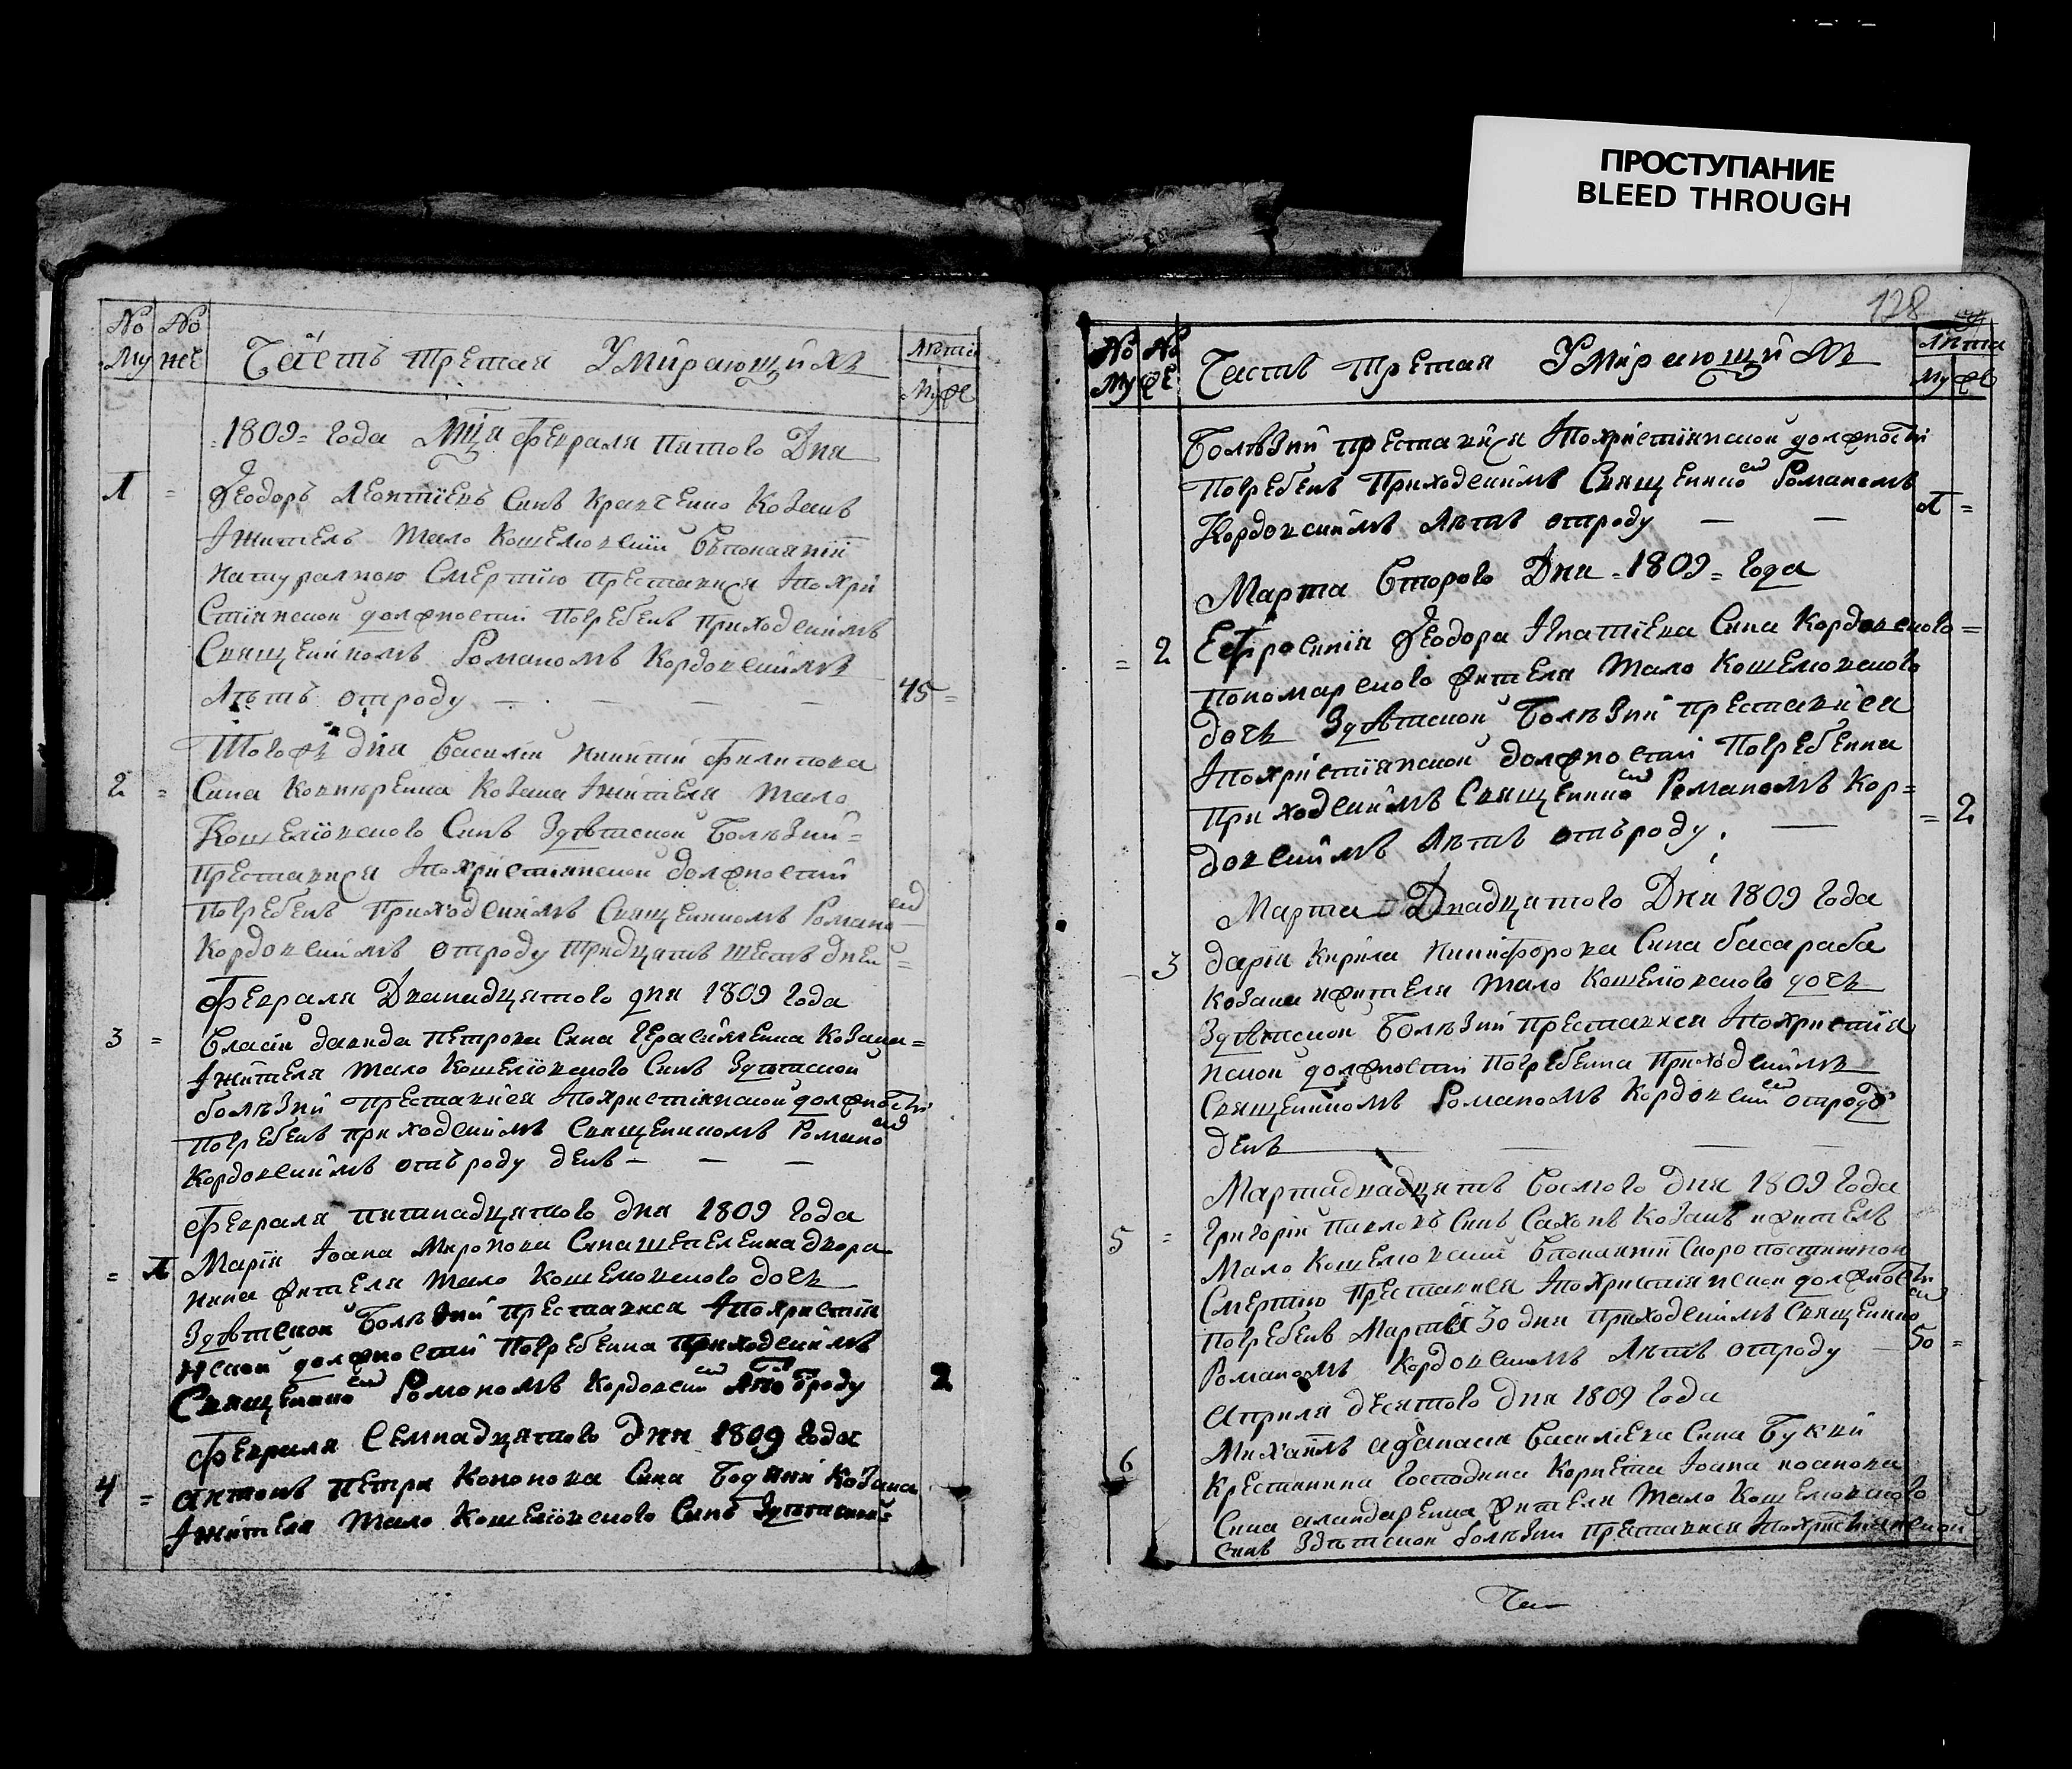 ПРОСТУПАНИЕ
BLEED THROUGH
No No
Му же
Часть третая Умирающихъ
Лѣта
Му же
1809 года Мца Февраля Пятого Дня
1 = Феодоръ Леонтіевъ Синъ Кравченко Козакъ
Іжитель Мало Кошелювскій Впокаяніи
Натуралною Смертію Преставися Іпохри
Стіянской должности Погребенъ Приходскимъ
Священикомъ Романомъ Кордовскимъ
Лѣтъ отроду 45 =
Тогожъ дня Василій Никити Филипова
2 = Сина Козака Іжителя Мало
Кошелювского Синъ Здѣтской Болѣзни
Преставися Іпохристіянской должности
Погребенъ Приходскимъ Священикомъ Романо
Кордовскимъ отроду тридцать шесть дней
Февраля Дванадцятого дня 1809 года
3 = Власій давида Петрова Сина Герасименка Козака
Іжителя Мало Кошелювского Синъ Здѣтской
болѣзни преставися Іпохристіянской должности
Погребенъ приходскимъ Священикомъ Романо
Кордовскимъ отъ роду день
Февраля пятнадцятого дня 1809 года
= 1 Марія Іоана Миронова Сина Шепеленка двора
нина жителя Мало Кошелювского дочъ
Здѣтской Болѣзни преставися Іпохристія
нской должности Погребенна приходскимъ
Священико Романомъ Кордовски роду 2
Февраля Семнадцятого Дня 1809 года
4 = антонъ Петра Кононова Сина Козака
Іжителя Мало Кошелювского Синъ Здѣтской
128
No No
Му же
Часть третая Умирающихъ
Лѣта
Му же
Болѣзни преставися Іпохристіянской должности
Погребенъ Приходскимъ Священико Романомъ
Кордовскимъ Лѣтъ отроду 1 =
Марта Второго Дня 1809 года
= 2 Ефросинія Феодора Игнатіева Сина Кордовского
Пономарского жителя Мало Кошелювского
дочъ Здѣтской Болѣзни преставися
Іпохристіянской должности Погребенна
Приходскимъ Священико Романомъ Кор=
довскимъ Лѣтъ отъроду = 2
Марта Двадцятого Дня 1809 года
3 дарія Кирила Никифорова Сина басараба
козака жителя Мало Кошелювского дочъ
Здѣтской Болѣзни преставися Іпохристія
нской должности Погребенна Приходскимъ
Священикомъ Романомъ Кордовски отроду
день
Марта двадцять Восмого дня 1809 года
5 = Григорій Павловъ Синъ Козакъ жителъ
Мало Кошелювскій Впокаяніи Скоропостижною
Смертію Преставися Іпохристіянской должности
Погребенъ Марта 30 дня Приходскимъ Священико
Романомъ Кордовскимъ Лѣтъ отроду 50 =
Априля десятого дня 1809 года
6 Михаилъ афанасія Василіева Сина
Крестянина Господина Корнета Іоана
Сина жителя Мало Кошелювского
Синъ Здѣтской болѣзни преставися Іпохристіянской